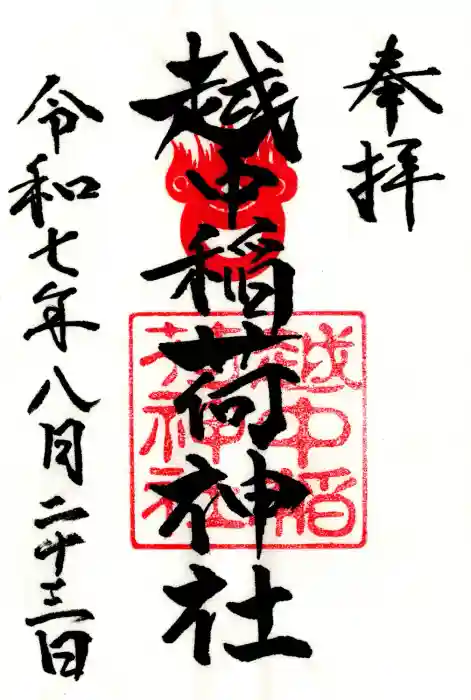 奉拝
越中稲荷神社
越中稲
荷神社
令和七年八月二十三日